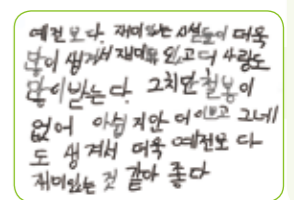 예전보다. 재미있는 시설들이 더욱
많이 생겨서 재미도 있고 더 사랑도
많이받는다. 그치만 철봉이
없어 아쉽지만 어 그네
도 생겨서 더욱 예전보 다
재미있는 것 같아 좋다